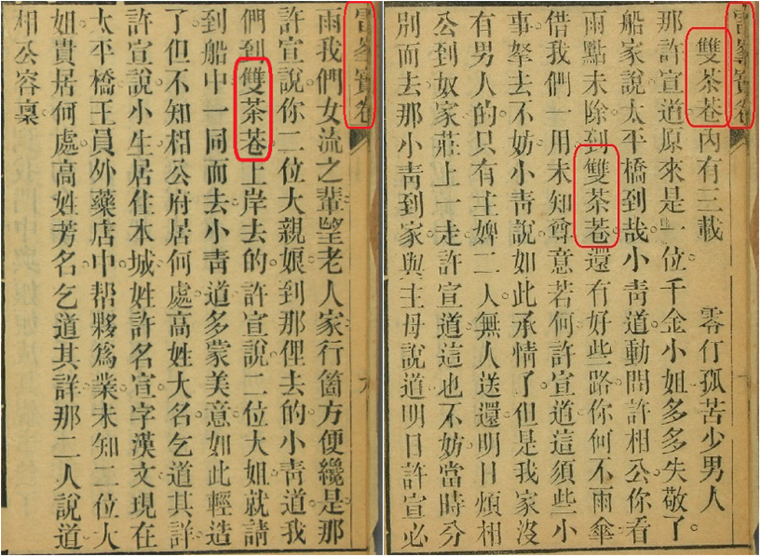 雷峯寶卷
雨我們女流之輩望老人家行箇方便纔是那
許宣說你二位大親娘到那俚去的小靑道我
們到雙茶巷上岸去的許宣說二位大姐就請
到船中一同而去小靑道多蒙美意如此輕造
了但不知相公府居何處高姓大名乞道其詳
許宣說小生居住本城姓許名宣字漢文現在
太平橋王員外藥店中帮夥爲業未知二位大
姐貴居何處高姓芳名乞道其詳那二人說道
相公容稟
雷峯寶卷
雙茶巷內有三載 零仃孤苦少男人
那許宣道原來是一位千金小姐多多失敬了
船家說太平橋到哉小靑道動問許相公你看
雨點未除到雙茶巷還有好些路你何不雨傘
借我們一用未知尊意若何許宣道這須些小
事拏去不妨小靑說如此承情了但是我家沒
有男人的只有主婢二人無人送還明日煩相
公到奴家莊上一走許宣道這也不妨當時分
別而去那小靑到家與主母說道明日許宣必